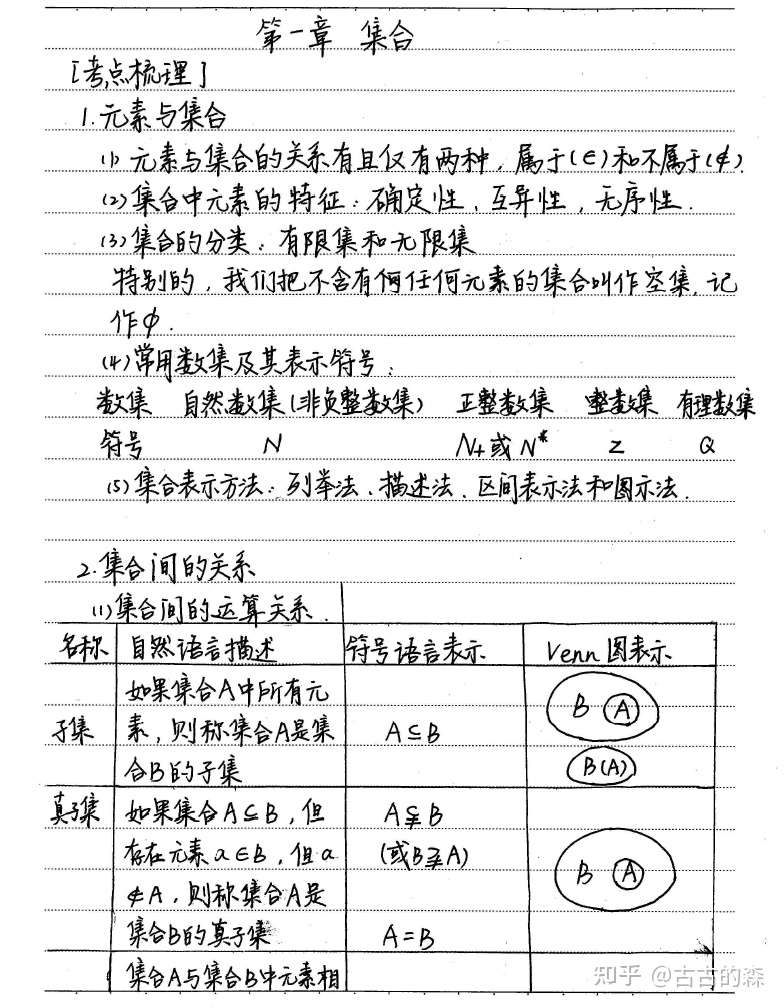 第一章 集合
[考点梳理]
1.元素与集合
(1) 元素与集合的关系有且仅有两种,属于(∈)和不属于(∉).
(2)集合中元素的特征:确定性、互异性,无序性.
(3)集合的分类:有限集和无限集
特别的,我们把不含有何任何元素的集合叫作空集,记
作φ.
(4)常用数集及其表示符号:
数集 自然数集(非负整数集) 正整数集 整数集 有理数集
符号 N N+或N* Z Q
(5)集合表示方法:列举法、描述法、区间表示法和图示法.
2.集合间的关系
(1)集合间的运算关系.
名称 自然语言描述 符号语言表示 Venn图表示
如果集合A中所有元
素,则称集合A是集
合B的子集
子集
A⊆B
B A
B(A)
真子集
如果集合A⊆B,但
存在元素a∈B,但a
∉A,则称集合A是
集合B的真子集
A⫋B
(或B⫌A)
B A
A=B
集合A与集合B中元素相
知乎 @古古的森